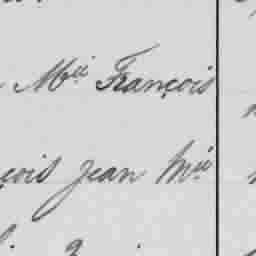 Mie François
çois Jean Mie